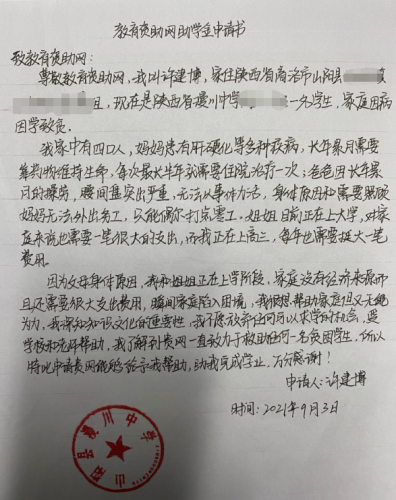 教育资助网助学金申请书
致教育资助网：
尊敬教育资助网，我叫许建博，家住陕西省商洛市山阳县
组，现在是陕西省漫川中学一名学生，家庭因病
因学致贫。
我家中有四口人，妈妈患有肝硬化等各种疾病，长年累月需要
靠药物维持生命，每次最长半年就需要住院治疗一次；爸爸因长年累
月的疲劳，腰间盘突出严重，无法从事体力活，身体原因和需要照顾
妈妈无法外出务工，只能偶尔打点零工。姐姐目前正在上大学，对家
庭来说也需要一笔很大的支出，而我正在上高三，每年也需要挺大一笔
费用。
因为父母身体原因，我和姐姐正在上学阶段，家庭没有经济来源而
且还需要很大支出费用，瞬间家庭陷入困境，我很想帮助家庭但又无能
为力。我深知知识文化的重要性，我不愿放弃任何可以求学的机会，受
学校和老师帮助，我了解到贵网一直致力于救助任何一名贫困学生，所以
特此申请贵网能够给予我帮助，助我完成学业，万分感谢！
申请人：许建博
时间：2021年9月3日
山阳县漫川中学